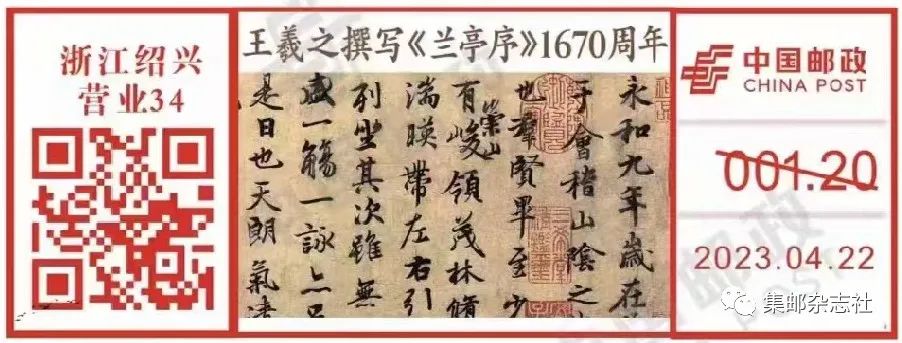 浙江绍兴
营业34
王羲之撰写《兰亭序》1670周年
永和九年歲在
于會稽山陰之
也羣賢畢至少
崇山
有峻領茂林脩
湍暎帶左右引
列坐其次雖無
盛一觴一詠亦足
是日也天朗氣清
中国邮政
CHINA POST
001.20
2023.04.22
集邮杂志社